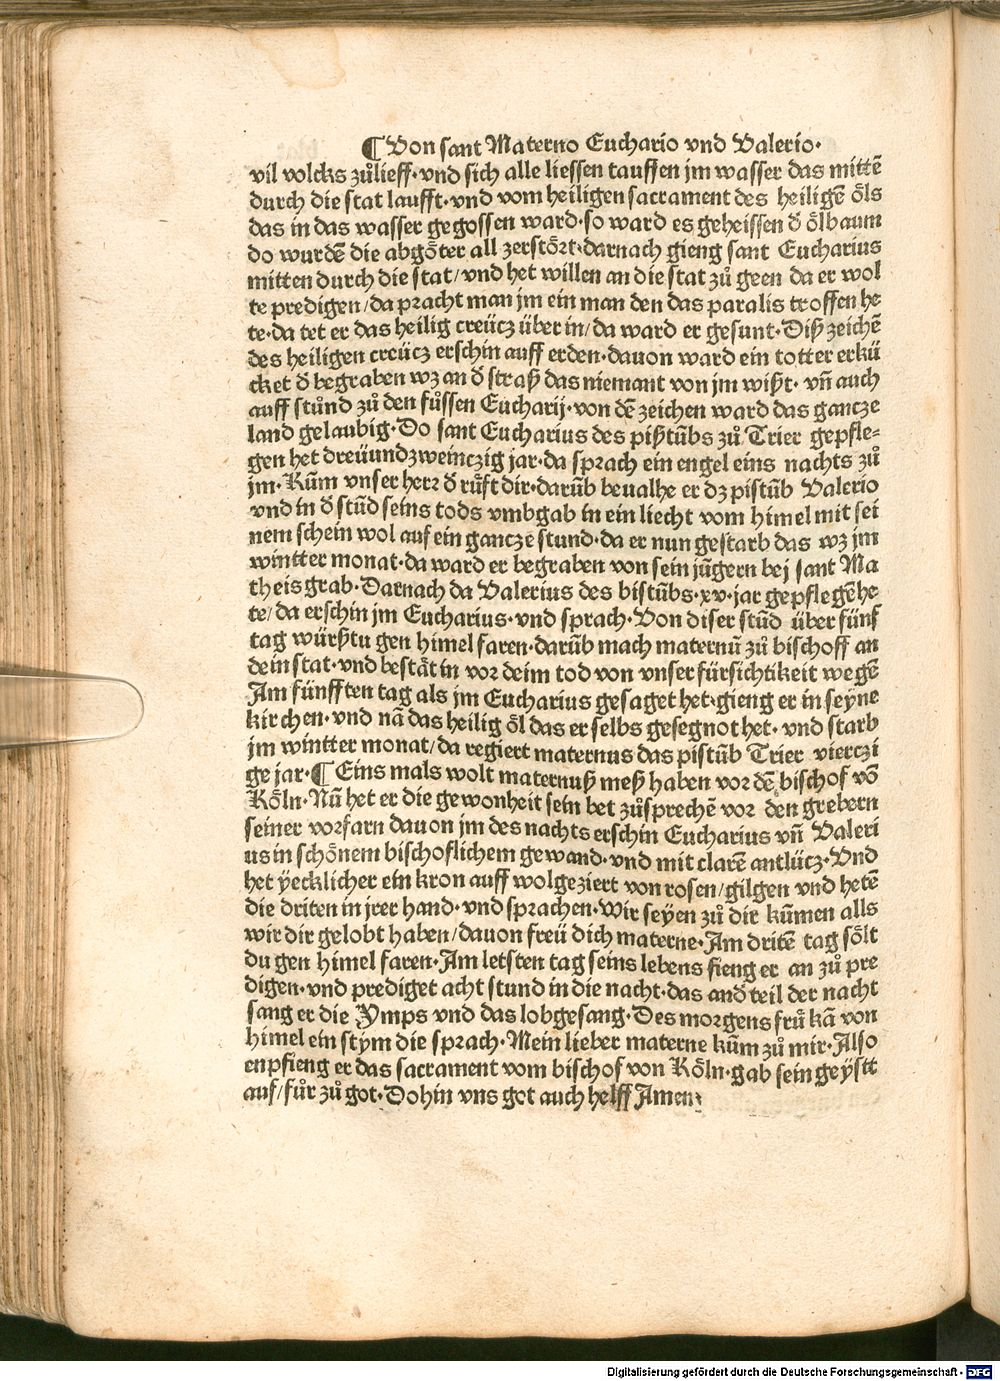 ¶ Von sant Materno Euchario vnd Valerio·
vil volcks zůlieff· vnd sich alle liessen tauffen jm wasser das mittē
durch die stat laufft· vnd vom heiligen sacrament des heiligē ôls
das in das wasser gegossen ward· so ward es geheissen đ ôlbaum
do wurdē die abgôter all zerstôrt· darnach gieng sant Eucharius
mitten durch die stat/ vnd het willen an die stat zů geen da er wol
te predigen/ da pracht man jm ein man den das paralis troffen he
te· da tet er das heilig creücz über in/ da ward er gesunt· Diß zeichē
des heiligen creücz erschin auff erden· dauon ward ein totter erkü
cket đ begraben wz an đ straß das niemant von jm wißt· vñ auch
auff stůnd zů den fůssen Eucharij· von dē zeichen ward das gancze
land gelaubig· Do sant Eucharius des pißtūbs zů Trier gepfle⸗
gen het dreüundzweinczig jar· da sprach ein engel eins nachts zů
jm· Kūm vnser herr đ růft dir· darūb beualhe er dz pistūb Valerio
vnd in đ stūd seins tods vmbgab in ein liecht vom himel mit sei
nem schein wol auf ein gancze stund· da er nun gestarb das wz jm
wintter monat· da ward er begraben von sein jūgern bej sant Ma
theis grab· Darnach da Valerius des bistūbs· xv· jar gepflegē he
te/ da erschin jm Eucharius· vnd sprach· Von diser stūd über fünf
tag würßtu gen himel faren· darūb mach maternū zů bischoff an
dein stat· vnd bestât in vor deim tod von vnser fürsichtikeit wegē
Am fünfften tag als jm Eucharius gesaget het· gieng er in seyne
kirchen· vnd nā das heilig ôl das er selbs gesegnot het· vnd starb
jm wintter monat/ da regiert maternus das pistūb Trier vierczi
ge jar· ¶ Eins mals wolt maternuß meß haben vor dē bischof vō
Kôln· Nū het er die gewonheit sein bet zůsprechē vor den grebern
seiner vorfarn dauon jm des nachts erschin Eucharius vñ Valeri
us in schônem bischoflichem gewand· vnd mit clarē antlücz· Vnd
het ÿecklicher ein kron auff wolgeziert von rosen/ gilgen vnd hetē
die driten in jrer hand· vnd sprachen· Wir seyen zů dir kūmen alls
wir dir gelobt haben/ dauon freü dich materne· Am dritē tag sôlt
du gen himel faren· Am letsten tag seins lebens fieng er an zů pre
digen· vnd prediget acht stund in die nacht· das anđ teil der nacht
sang er die Ymps vnd das lobgesang· Des morgens frů kā von
himel ein stym die sprach· Mein lieber materne kūm zů mir· Also
enpfieng er das sacrament vom bischof von Kôln· gab sein geÿstt
auf/ fůr zů got· Dohin vns got auch helff Amen·
Digitalisierung gefördert durch die Deutsche Forschungsgemeinschaft · DFG